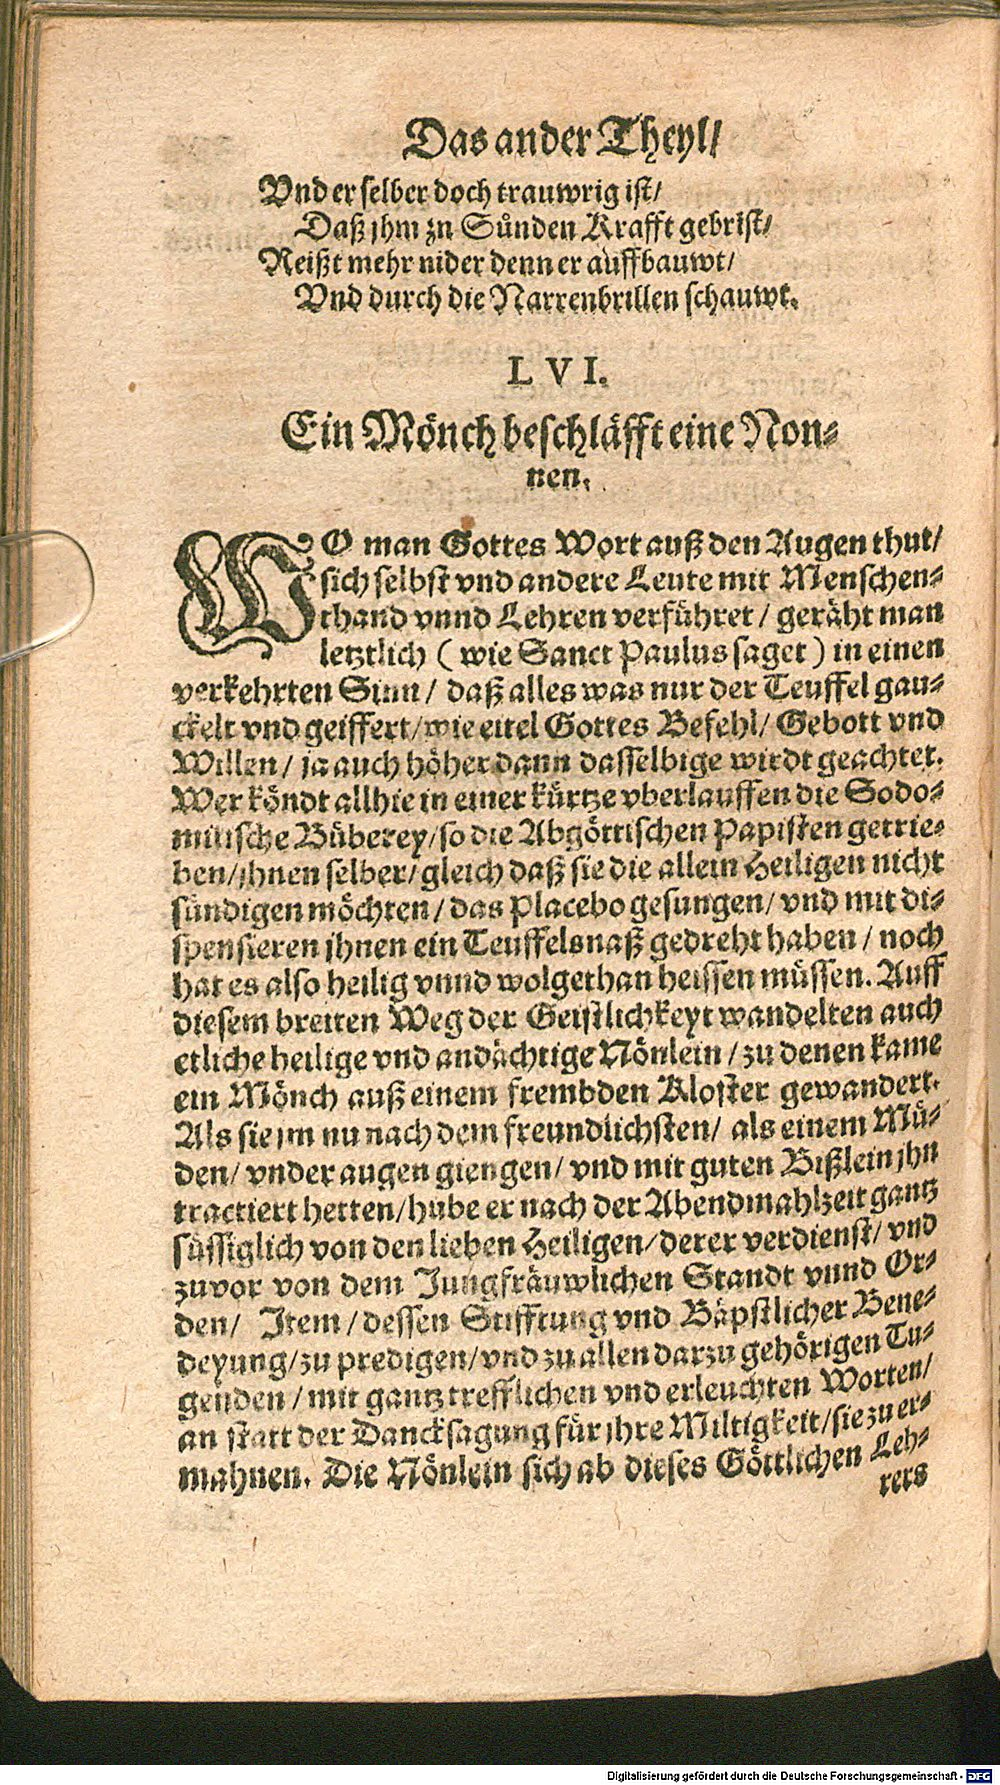 Das ander Theyl/
Vnd er selber doch trauwrig ist/
Daß jhm zn Sünden Krafft gebrist/
Reißt mehr nider denn er auffbauwt/
Vnd durch die Narrenbrillen schauwt.
LVI.
Ein Mönch beschläfft eine Non-
nen.
WO man Gottes Wort auß den Augen thut/
sich selbst vnd andere Leute mit Menschen-
thand vnnd Lehren verführet / geräht man
letztlich ( wie Sanct Paulus saget ) in einen
verkehrten Sinn / daß alles was nur der Teuffel gau-
ckelt vnd geiffert / wie eitel Gottes Befehl / Gebott vnd
Willen / ja auch höher dann dasselbige wirdt geachtet.
Wer köndt allhie in einer kürtze vberlauffen die Sodo-
mitische Büberey / so die Abgöttischen Papisten getrie-
ben / jhnen selber / gleich daß sie die allein Heiligen nicht
sündigen möchten / das Placebo gesungen / vnd mit di-
spensieren jhnen ein Teuffelsnaß gedreht haben / noch
hat es also heilig vnnd wolgethan heissen müssen. Auff
diesem breiten Weg der Geistlichkeyt wandelten auch
etliche heilige vnd andächtige Nönlein / zu denen kame
ein Mönch auß einem frembden Kloster gewandert.
Als sie jm nu nach dem freundlichsten / als einem Mü-
den / vnder augen giengen / vnd mit guten Bißlein jhn
tractiert hetten / hube er nach der Abendmahlzeit gantz
süssiglich von den lieben Heiligen / derer verdienst / vnd
zuvor von dem Jungfräuwlichen Standt vnnd Or-
den / Item / dessen Stifftung vnd Bäpstlicher Bene-
deyung / zu predigen / vnd zu allen darzu gehörigen Tu-
genden / mit gantz trefflichen vnd erleuchten Worten /
an statt der Dancksagung für jhre Miltigkeit / sie zu er-
mahnen. Die Nönlein sich ab dieses Göttlichen Leh-
rers
Digitalisierung gefördert durch die Deutsche Forschungsgemeinschaft - DFG